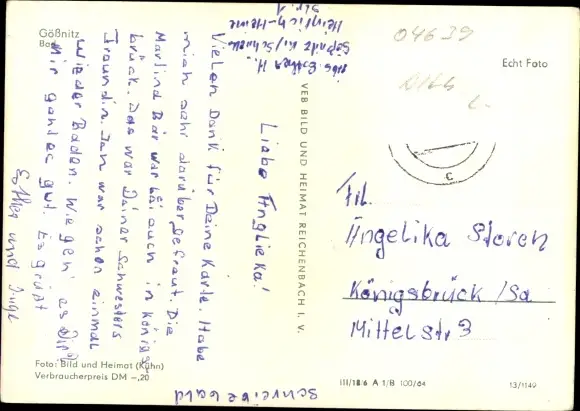 Gößnitz
Bad
Echt Foto
04639
Heinrich-Heine
Str. 1
Liebe Anglieka!
Vielen Dank für Deine Karte. Habe
mich sehr darüber gefraut. Die
Marlind Bär war bei auch in Königs-
brück. Das war Deiner Schwesters
Fraundin. Ich war schon einmal
wieder Baden. Wie geh' es Dir?
Mir geht es gut. Es grüßt
Esther und Inge
Schreibe bald
VEB BILD UND HEIMAT REICHENBACH I. V.
Frl.
Angelika Storch
Königsbrück /Sa
Mittelstr 3
Foto: Bild und Heimat (Kühn)
Verbraucherpreis DM –,20
III/18/6 A 1/B 100/64
13/1149